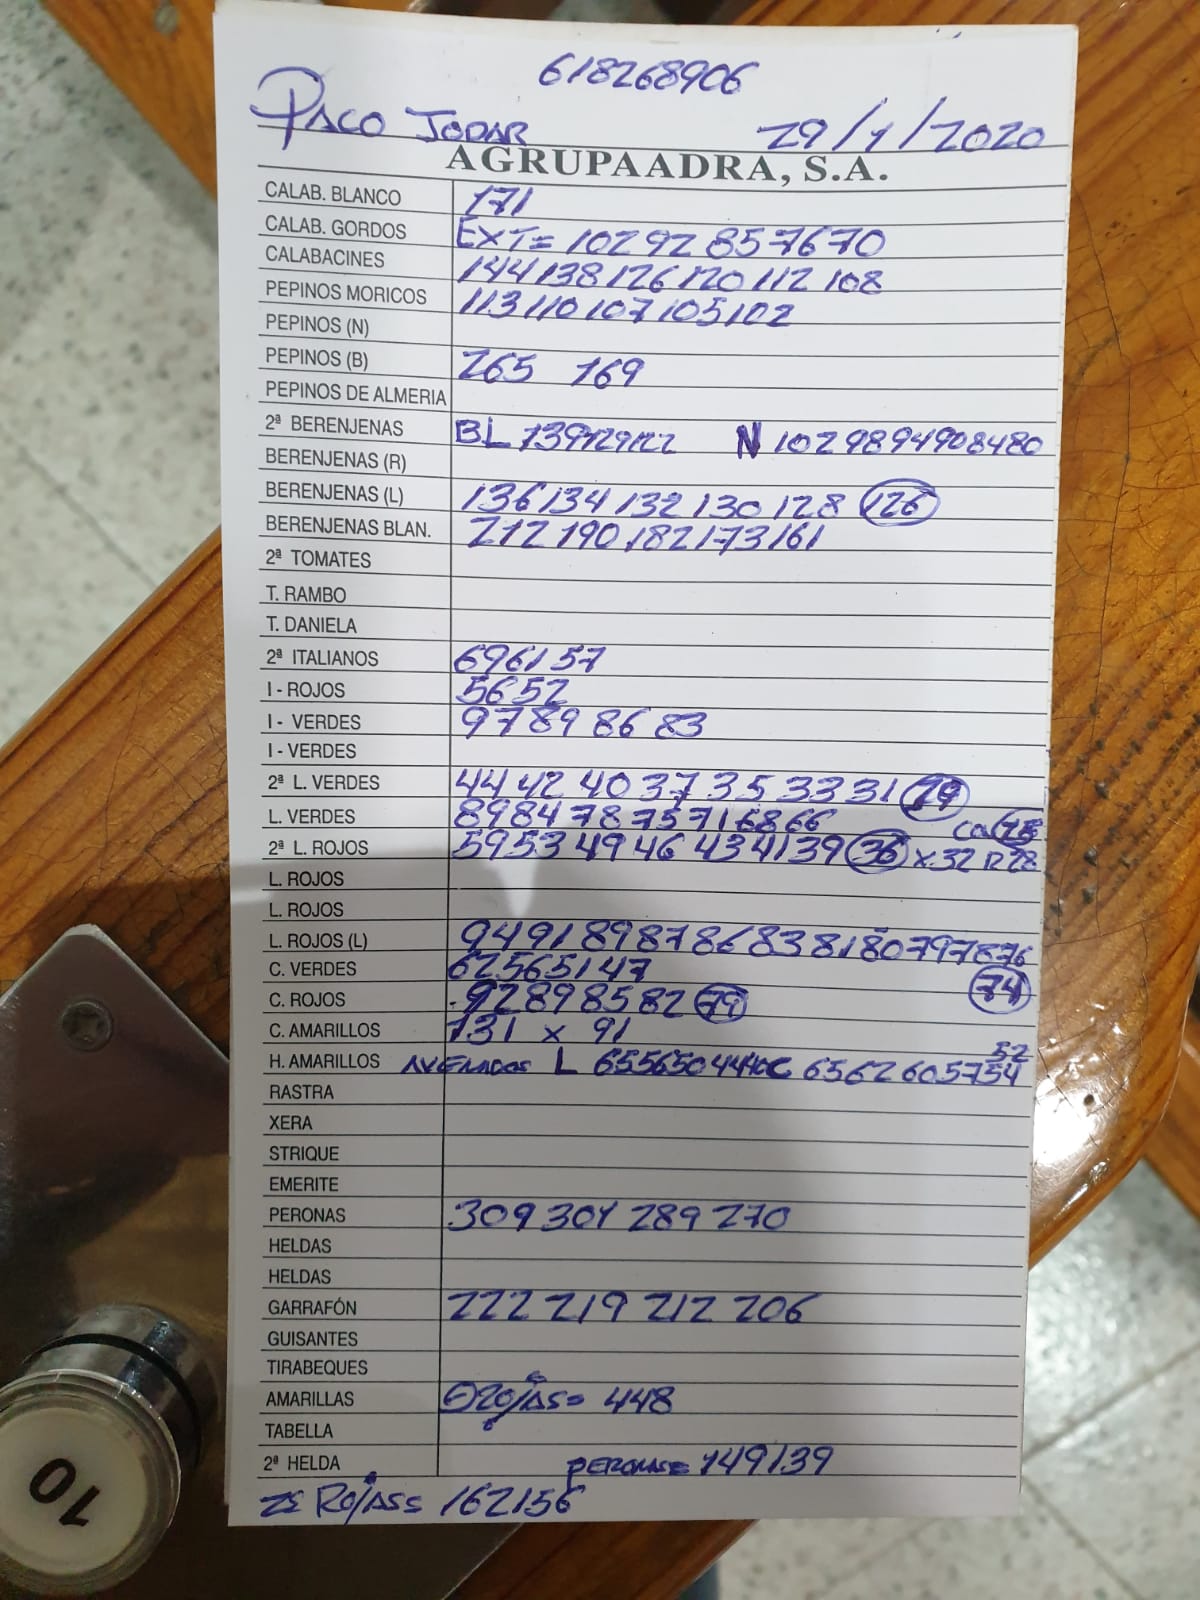 618268906
PACO JODAR 29/1/2020
AGRUPAADRA, S.A.
CALAB. BLANCO 171
CALAB. GORDOS EXT= 102 92 85 76 70
CALABACINES 144 138 126 120 112 108
PEPINOS MORICOS 113 110 107 105 102
PEPINOS (N)
PEPINOS (B) 265 169
PEPINOS DE ALMERIA
2ª BERENJENAS BL 139 129 122 N 102 98 94 90 84 80
BERENJENAS (R)
BERENJENAS (L) 136 134 132 130 128 126
BERENJENAS BLAN. 212 190 182 173 161
2ª TOMATES
T. RAMBO
T. DANIELA
2ª ITALIANOS 69 61 57
I - ROJOS 56 52
I - VERDES 97 89 86 83
I - VERDES
2ª L. VERDES 44 42 40 37 35 33 31 29
L. VERDES 89 84 78 75 71 68 66
2ª L. ROJOS 59 53 49 46 43 41 39 36 x 32 R 28
L. ROJOS
L. ROJOS
L. ROJOS (L) 94 91 89 87 86 83 81 80 79 78 76
C. VERDES 62 56 51 47 74
C. ROJOS 92 89 85 82 79
C. AMARILLOS 131 x 91
52
H. AMARILLOS L 65 56 50 44 40 C 65 62 60 57 54
RASTRA
XERA
STRIQUE
EMERITE
PERONAS 309 301 289 270
HELDAS
HELDAS
GARRAFÓN 222 219 212 206
GUISANTES
TIRABEQUES
AMARILLAS ROJAS= 448
TABELLA
2ª HELDA PERONAS= 149 139
ROJAS= 162 156
10